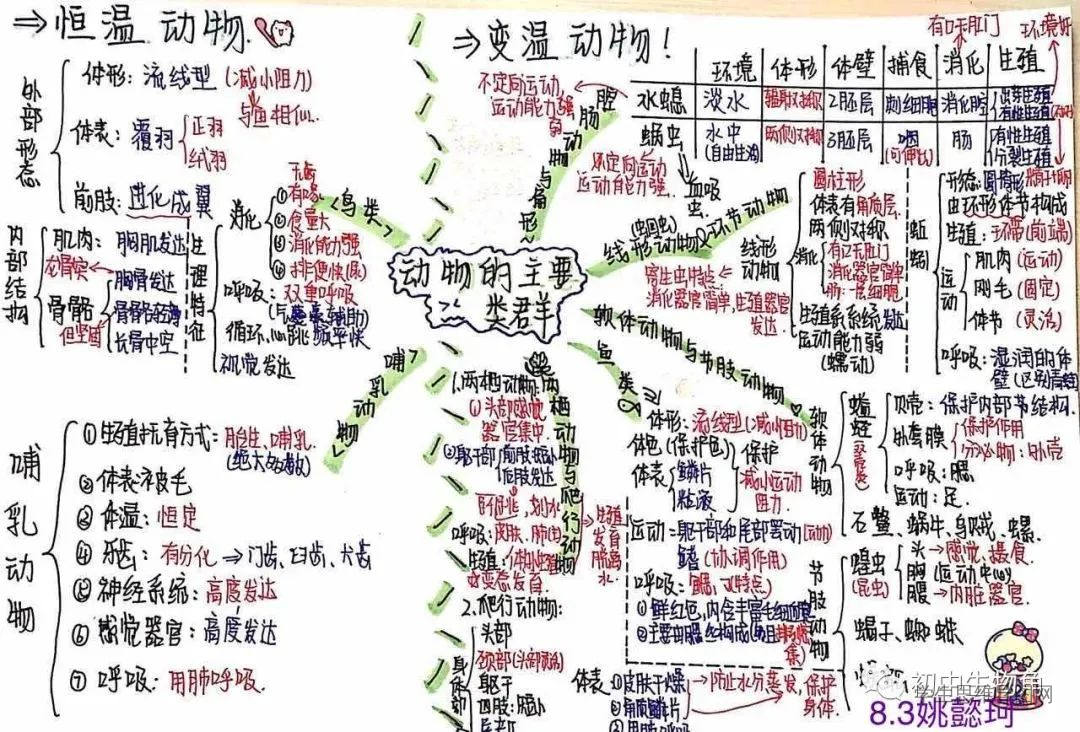 ⇒恒温动物.
外部形态
体形：流线型（减小阻力）
与鱼相似.
体表：覆羽
正羽
绒羽
前肢：进化成翼
内部结构
肌肉：胸肌发达
龙骨突
胸骨发达
骨骼
但坚固
长骨中空
生理特征
消化
①有喙
无齿
②食量大
③消化能力强
④排粪快(尿)
呼吸：双重呼吸
(气囊辅助)
循环，心跳频率快
视觉发达
鸟类
哺乳动物
哺乳动物
①生殖抚育方式：胎生、哺乳.
(绝大多数)
②体表被毛
③体温：恒定
④牙齿：有分化⇒门齿、臼齿、犬齿
⑤神经系统：高度发达
⑥感觉器官：高度发达
⑦呼吸：用肺呼吸.
动物的主要
类群
⇒变温动物！
有口无肛门
环境好
环境 体形 体壁 捕食 消化 生殖
水螅 淡水 辐射对称 2胚层 刺细胞 消化腔 出芽生殖
有性生殖
涡虫 水中 两侧对称 3胚层 咽 肠 有性生殖
(自由生活) (可伸出) 分裂生殖
不定向运动，
运动能力弱
运动能力强.
血吸虫
腔肠动物与扁形
线形动物&环节动物
(蛔虫)
线形动物
圆柱形
体表有角质层.
两侧对称
消化
有口无肛门
消化器官简单
肠：一层细胞
生殖系统发达
运动能力弱
(蠕动)
寄生虫特点：
消化器官简单，生殖器官
发达.
蚯蚓
形态：圆筒形
由环形体节构成
生殖：环带(前端)
运动
肌肉(运动)
刚毛(固定)
体节(灵活)
呼吸：湿润的体
壁
软体动物与节肢动物
软体动物
贝壳：保护内部节结构.
外套膜
保护作用
分泌物：外壳
呼吸：鳃
运动：足.
石鳖、蜗牛、乌贼、螺
节肢动物
蝗虫
(昆虫)
头→感觉、摄食.
胸(运动中心)
腹→内脏器官.
蝎子、蜘蛛
鱼类
体形：流线型(减小阻力)
体色(保护色)
体表
鳞片
粘液
保护
减小运动
阻力.
运动：躯干部和尾部摆动(运动)
鳍(协调作用)
呼吸：鳃(特点)
①鲜红色，内含丰富毛细血管
两栖动物与爬行动物
1.两栖动物：
①头部感觉
器官集中.
②躯干部
前肢短小
后肢发达
跳，划水
呼吸：皮肤、肺
生殖：体外受精
变态发育.
生殖发育脱离水.
2.爬行动物：
头部
颈部(头部灵活)
躯干
四肢：短小
尾部
体表
①皮肤干燥
②角质鳞片
→防止水分蒸发，保护
身体.
初中生物角
8.3姚懿珂